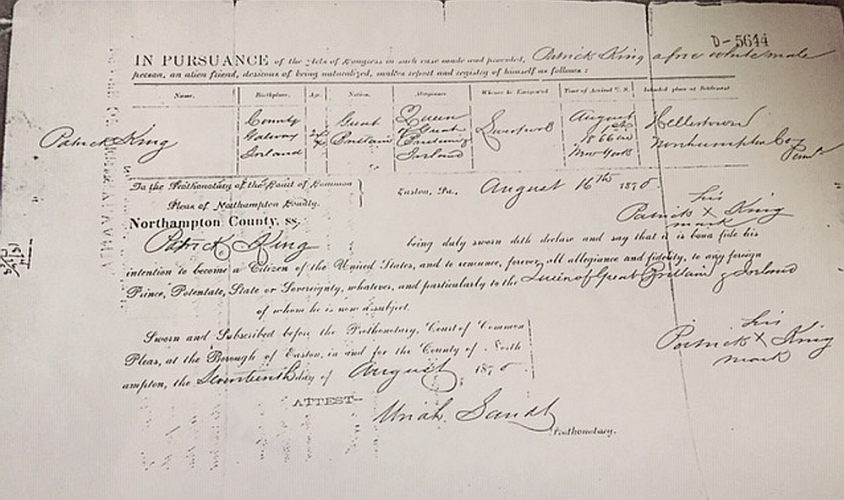 D-5644
IN PURSUANCE of the Acts of Congress in such case made and provided, Patrick King a free white male
person, an alien friend, desirous of being naturalized, makes report and registry of himself as follows:
Name. Birthplace. Age. Nation. Allegiance Whence he Emigrated Time of Arrival U. S. Intended place of Residence
Patrick King County Galway Ireland 24 Great Britain Queen of Great Britain & Ireland August 1st 1866 in New York Hellertown Northampton Coy Penna
To the Prothonotary of the Court of Common
Pleas of Northampton County.
Easton, Pa. August 16th 1870.
Northampton County, ss.
his
Patrick X King
mark
Patrick King being duly sworn doth declare and say that it is bona fide his
intention to become a Citizen of the United States, and to renounce, forever, all allegiance and fidelity, to any foreign
Prince, Potentate, State or Sovereignty, whatever, and particularly to the Queen of Great Brittain & Ireland
of whom he is now a subject.
Sworn and Subscribed before the Prothonotary, Court of Common
Pleas, at the Borough of Easton, in and for the County of North
ampton, the Seventeenth day of August 1870.
his
Patrick X King
mark
ATTEST—
Uriah Sandt
Prothonotary.